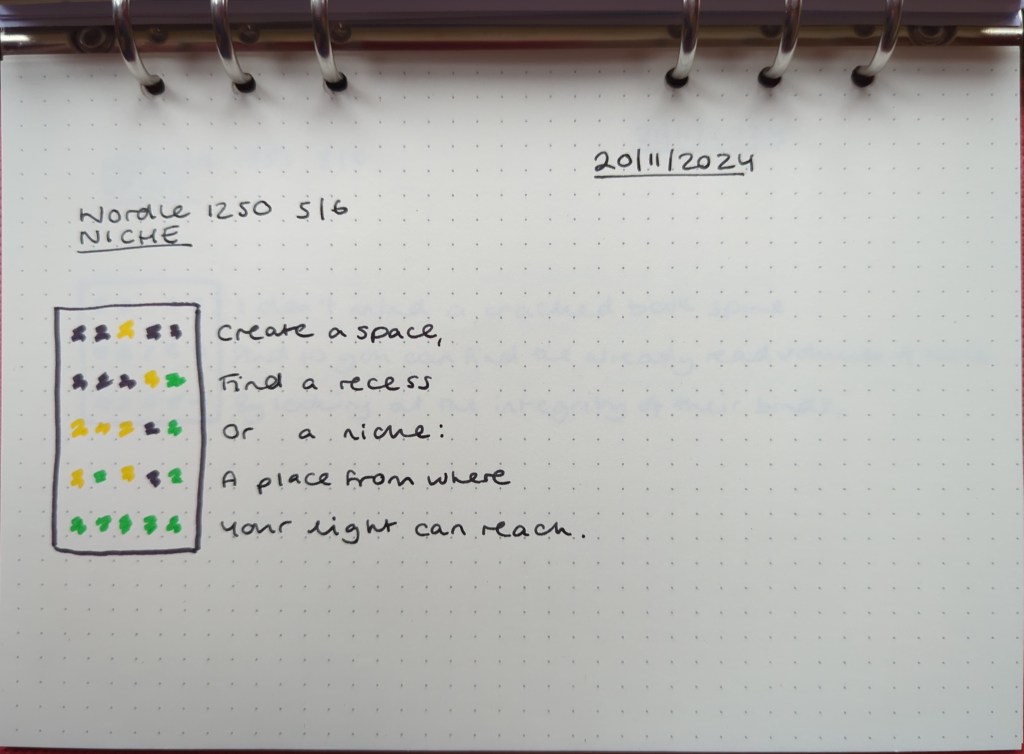 20/11/2024
Wordle 1250 5/6
NICHE
Create a space,
Find a recess
Or a niche:
A place from where
your light can reach.